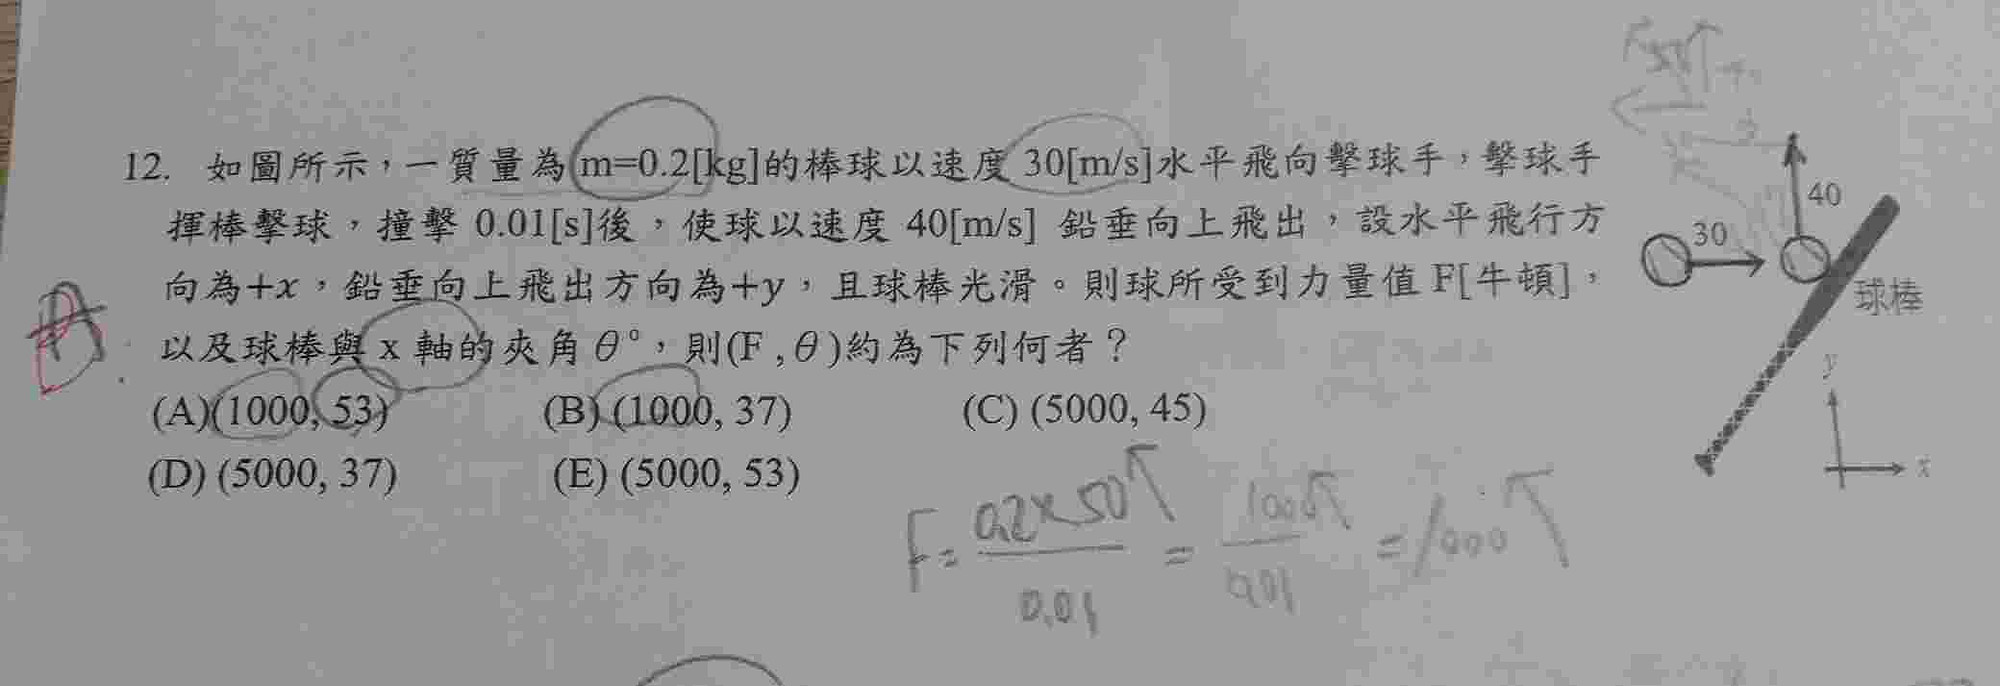 12. 如圖所示，一質量為 m=0.2[kg]的棒球以速度 30[m/s]水平飛向擊球手，擊球手
揮棒擊球，撞擊 0.01[s]後，使球以速度 40[m/s] 鉛垂向上飛出，設水平飛行方
向為+x，鉛垂向上飛出方向為+y，且球棒光滑。則球所受到力量值 F[牛頓]，
以及球棒與 x 軸的夾角 θ°，則(F , θ)約為下列何者？
(A)(1000, 53) (B) (1000, 37) (C) (5000, 45)
(D) (5000, 37) (E) (5000, 53)
40
30
球棒
y
x
F= 0.2×50 / 0.01 = / 0.01 = 1000